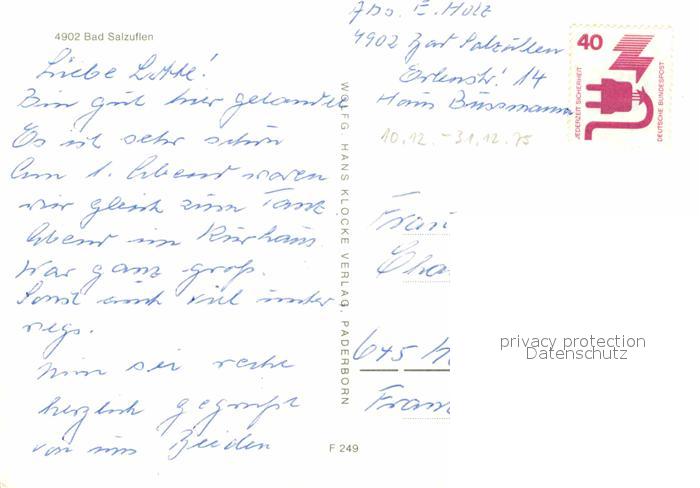 4902 Bad Salzuflen
Liebe Lotte!
Bin gut hier gelandet
Es ist sehr schön
Am 1. Abend waren
wir gleich zum Tanz
Abend im Kurhaus.
War ganz groß.
Sonst auch viel unter
wegs.
Nun sei recht
herzlich gegrüßt
von uns Beiden
WOLFG. HANS KLOCKE VERLAG, PADERBORN
F 249
Abs. E. Hotz
4902 Bad Salzuflen
Erlenstr. 14
Haus Büssmann
10.12. - 31.12.75
40
JEDERZEIT SICHERHEIT
DEUTSCHE BUNDESPOST
Frau
Cha
645 H
Fran
privacy protection
Datenschutz